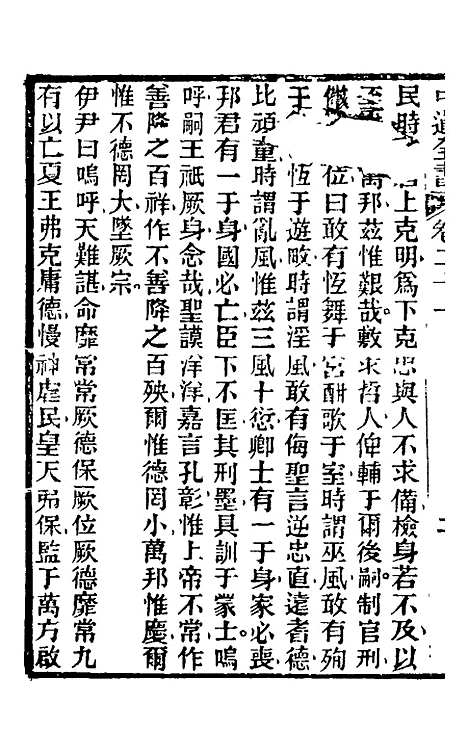 民時居上克明爲下克忠與人不求備檢身若不及以
至萬邦茲惟艱哉敷求哲人俾輔于爾後嗣制官刑
儆位曰敢有恆舞于宮酣歌于室時謂巫風敢有殉
于恆于遊畋時謂淫風敢有侮聖言逆忠直遠耆德
比頑童時謂亂風惟茲三風十愆卿士有一于身家必喪
邦君有一于身國必亡臣下不匡其刑墨具訓于蒙士嗚
呼嗣王祇厥身念哉聖謨洋洋嘉言孔彰惟上帝不常作
善降之百祥作不善降之百殃爾惟德罔小萬邦惟慶爾
惟不德罔大墜厥宗
伊尹曰嗚呼天難諶命靡常常厥德保厥位厥德靡常九
有以亡夏王弗克庸德慢神虐民皇天弗保監于萬方啟